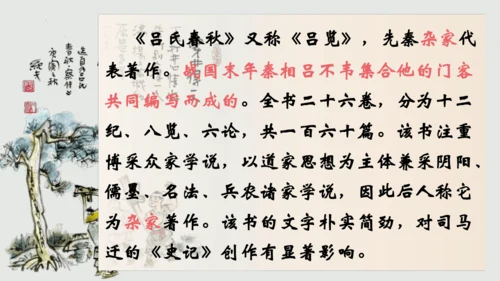 《吕氏春秋》又称《吕览》，先秦杂家代
表著作。战国末年秦相吕不韦集合他的门客
共同编写而成的。全书二十六卷，分为十二
纪、八览、六论，共一百六十篇。该书注重
博采众家学说，以道家思想为主体兼采阴阳、
儒墨、名法、兵农诸家学说，因此后人称它
为杂家著作。该书的文字朴实简劲，对司马
迁的《史记》创作有显著影响。